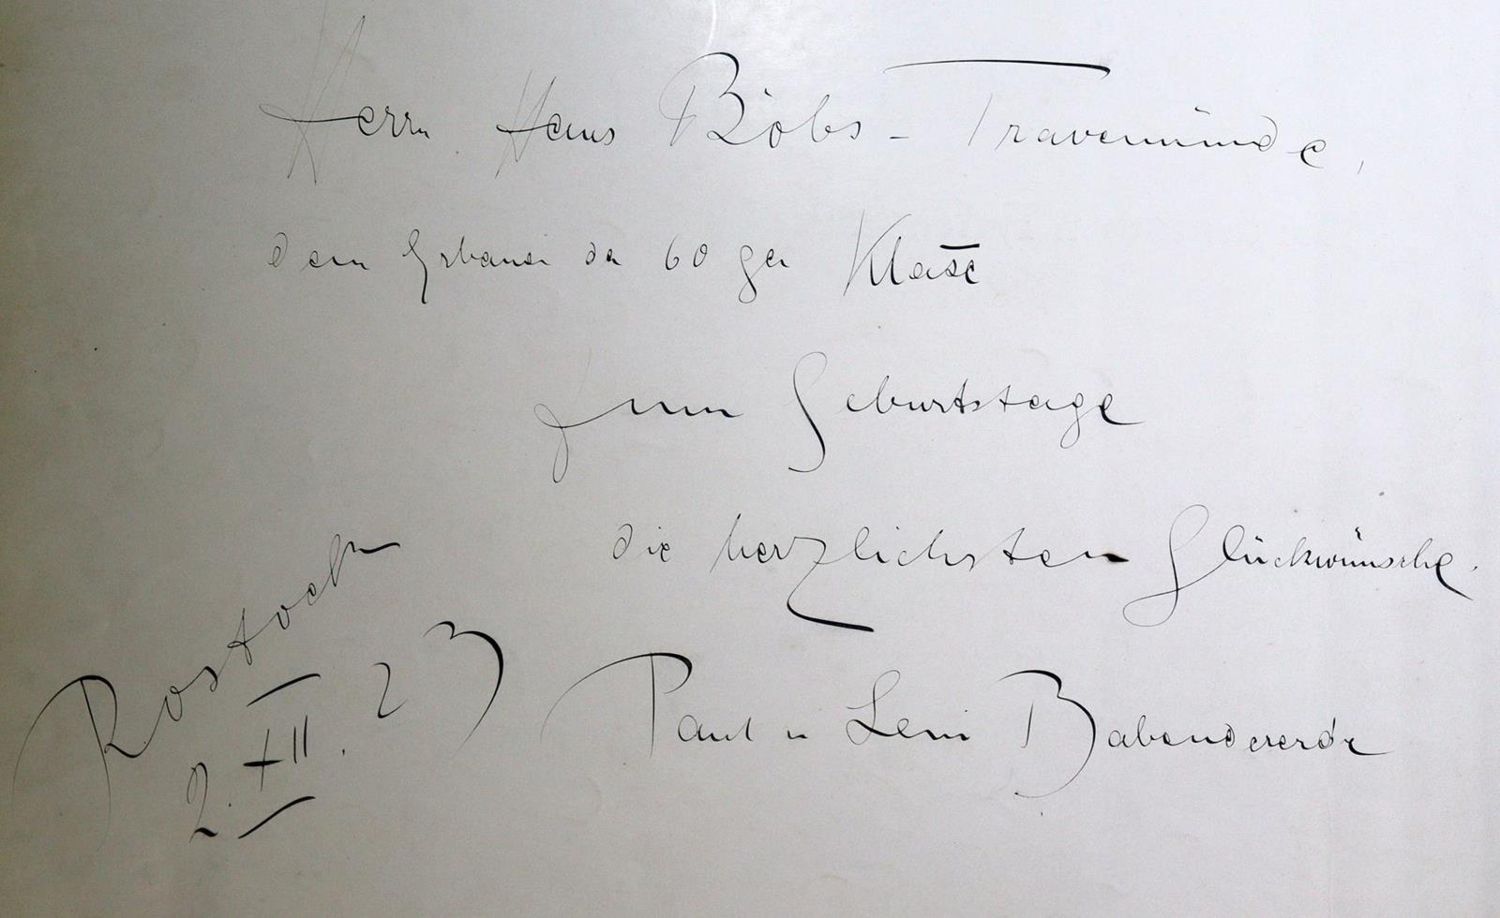 Herrn Hans Böbs - Travemünde,
dem Erbauer der 60 ger Klasse
zum Geburtstage
die herzlichsten Glückwünsche.
Paul u Leni Babendererde
Rostock
2. XII. 23